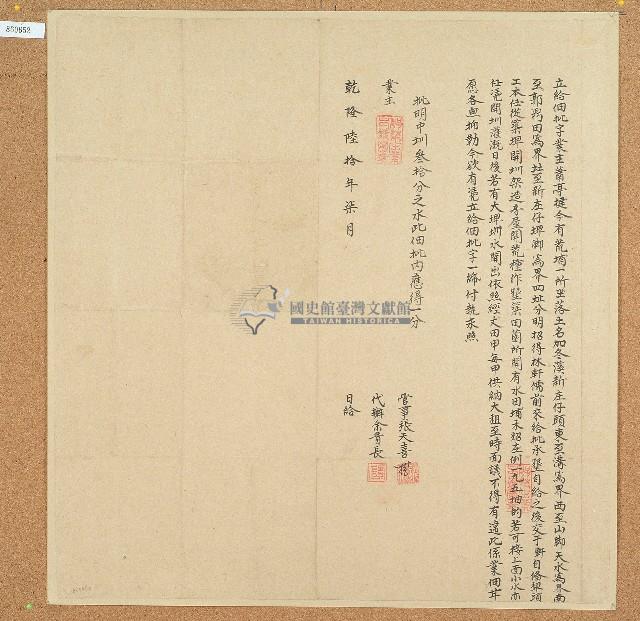 立給佃批字業主蕭亭捷今有荒埔一所坐落土名加冬溪新庄仔頭東至溝為界西至山腳天水為界南
至郭淍田為界北至新庄仔埤腳為界四址分明招得林軒儒前來給批承墾自給之後交于軒自俻犁頭
工本任從築埤開圳架造茅屋開荒種作墾築田園所開有水田埔未招左例一九五抽的若可接上面小水亦
任憑開圳灌溉日後若有大埤圳水開出依照經丈田甲每甲供納大租至時面議不得有違此係業佃甘
愿各無抑勒今欲有憑立給佃批字一紙付執永照
批明中圳叁拾分之水此佃批內應得一分
業主
管事張天喜
代辦余育長
乾隆陸拾年柒月
日給
國史館臺灣文獻館
TAIWAN HISTORICA